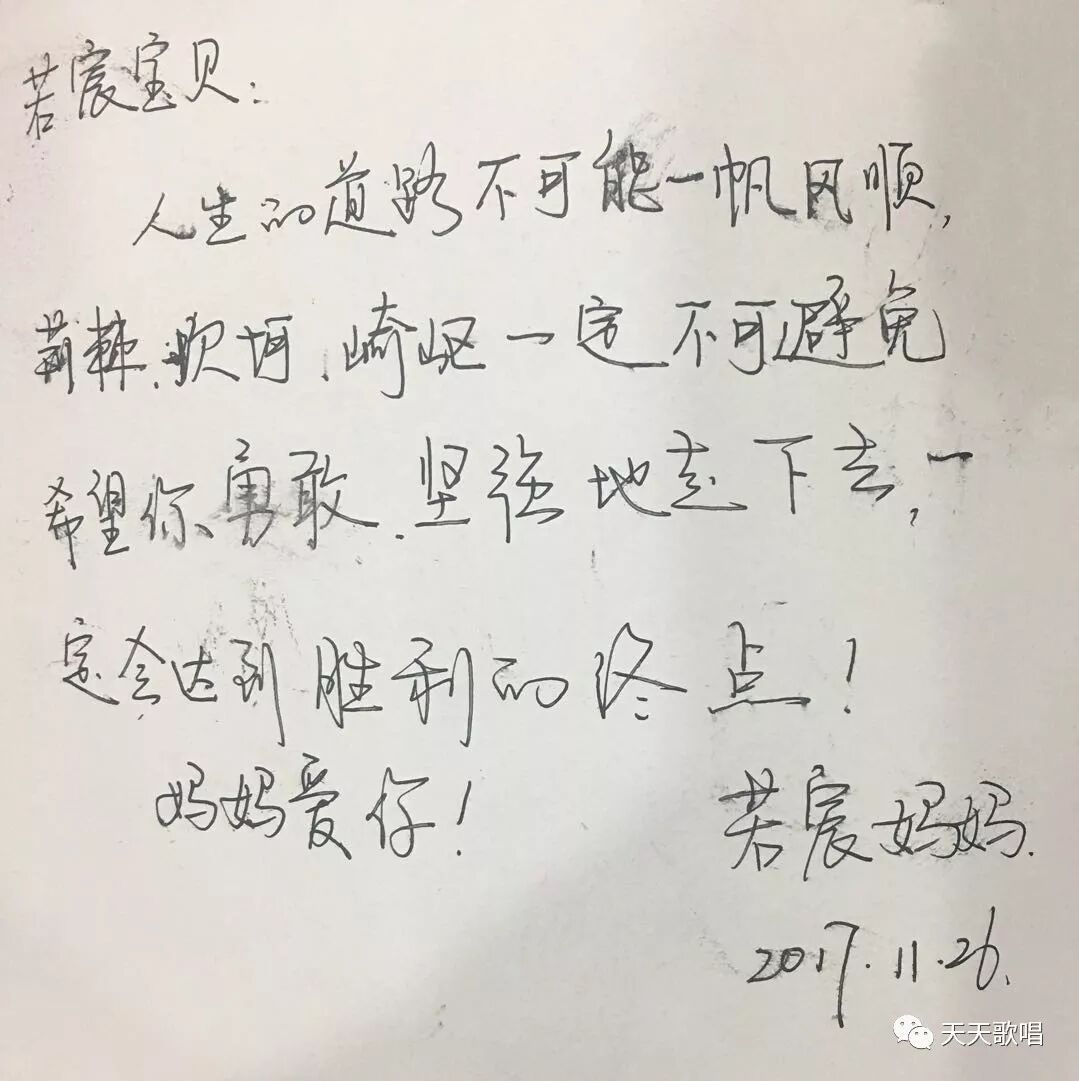 若宸宝贝:
人生的道路不可能一帆风顺,
荆棘、坎坷、崎岖一定不可避免
希望你勇敢、坚强地走下去,一
定会达到胜利的终点!
妈妈爱你!
若宸妈妈.
2017.11.26.
天天歌唱